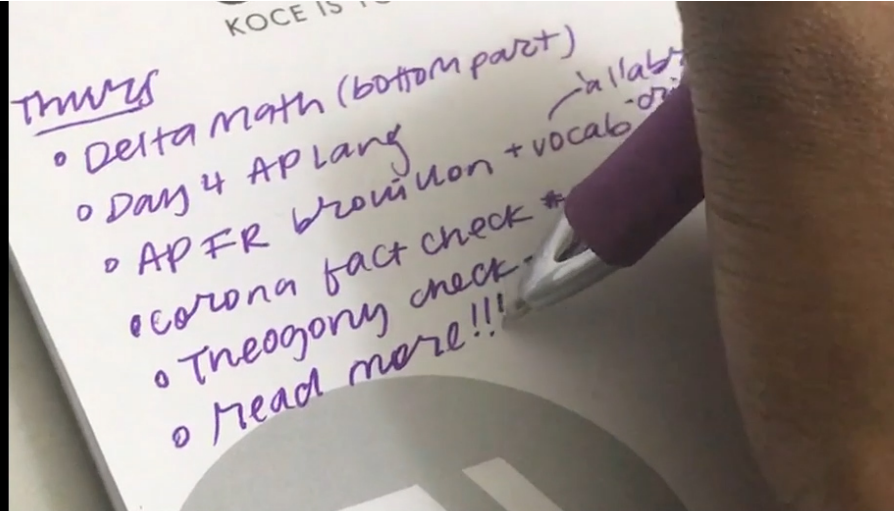 KOCE IS
Thurs
Delta Math (bottom part)
Day 4 AP Lang
AP FR brouillon + vocab
corona fact check *
Theogony check
read more!!!